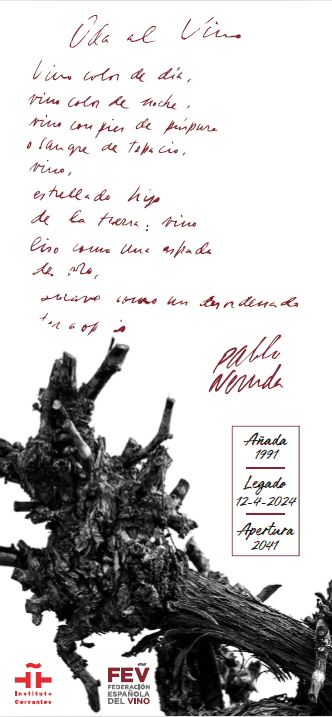 Oda al Vino
Vino color de día,
vino color de noche,
vino con pies de púrpura
o sangre de topacio,
vino,
estrellado hijo
de la tierra, vino
liso como una espada
de oro,
suave como un desordenado
terciopelo
pablo
Neruda
Añada
1991
Legado
12-4-2024
Apertura
2041
Instituto
Cervantes
FEV
FEDERACIÓN
ESPAÑOLA
DEL VINO